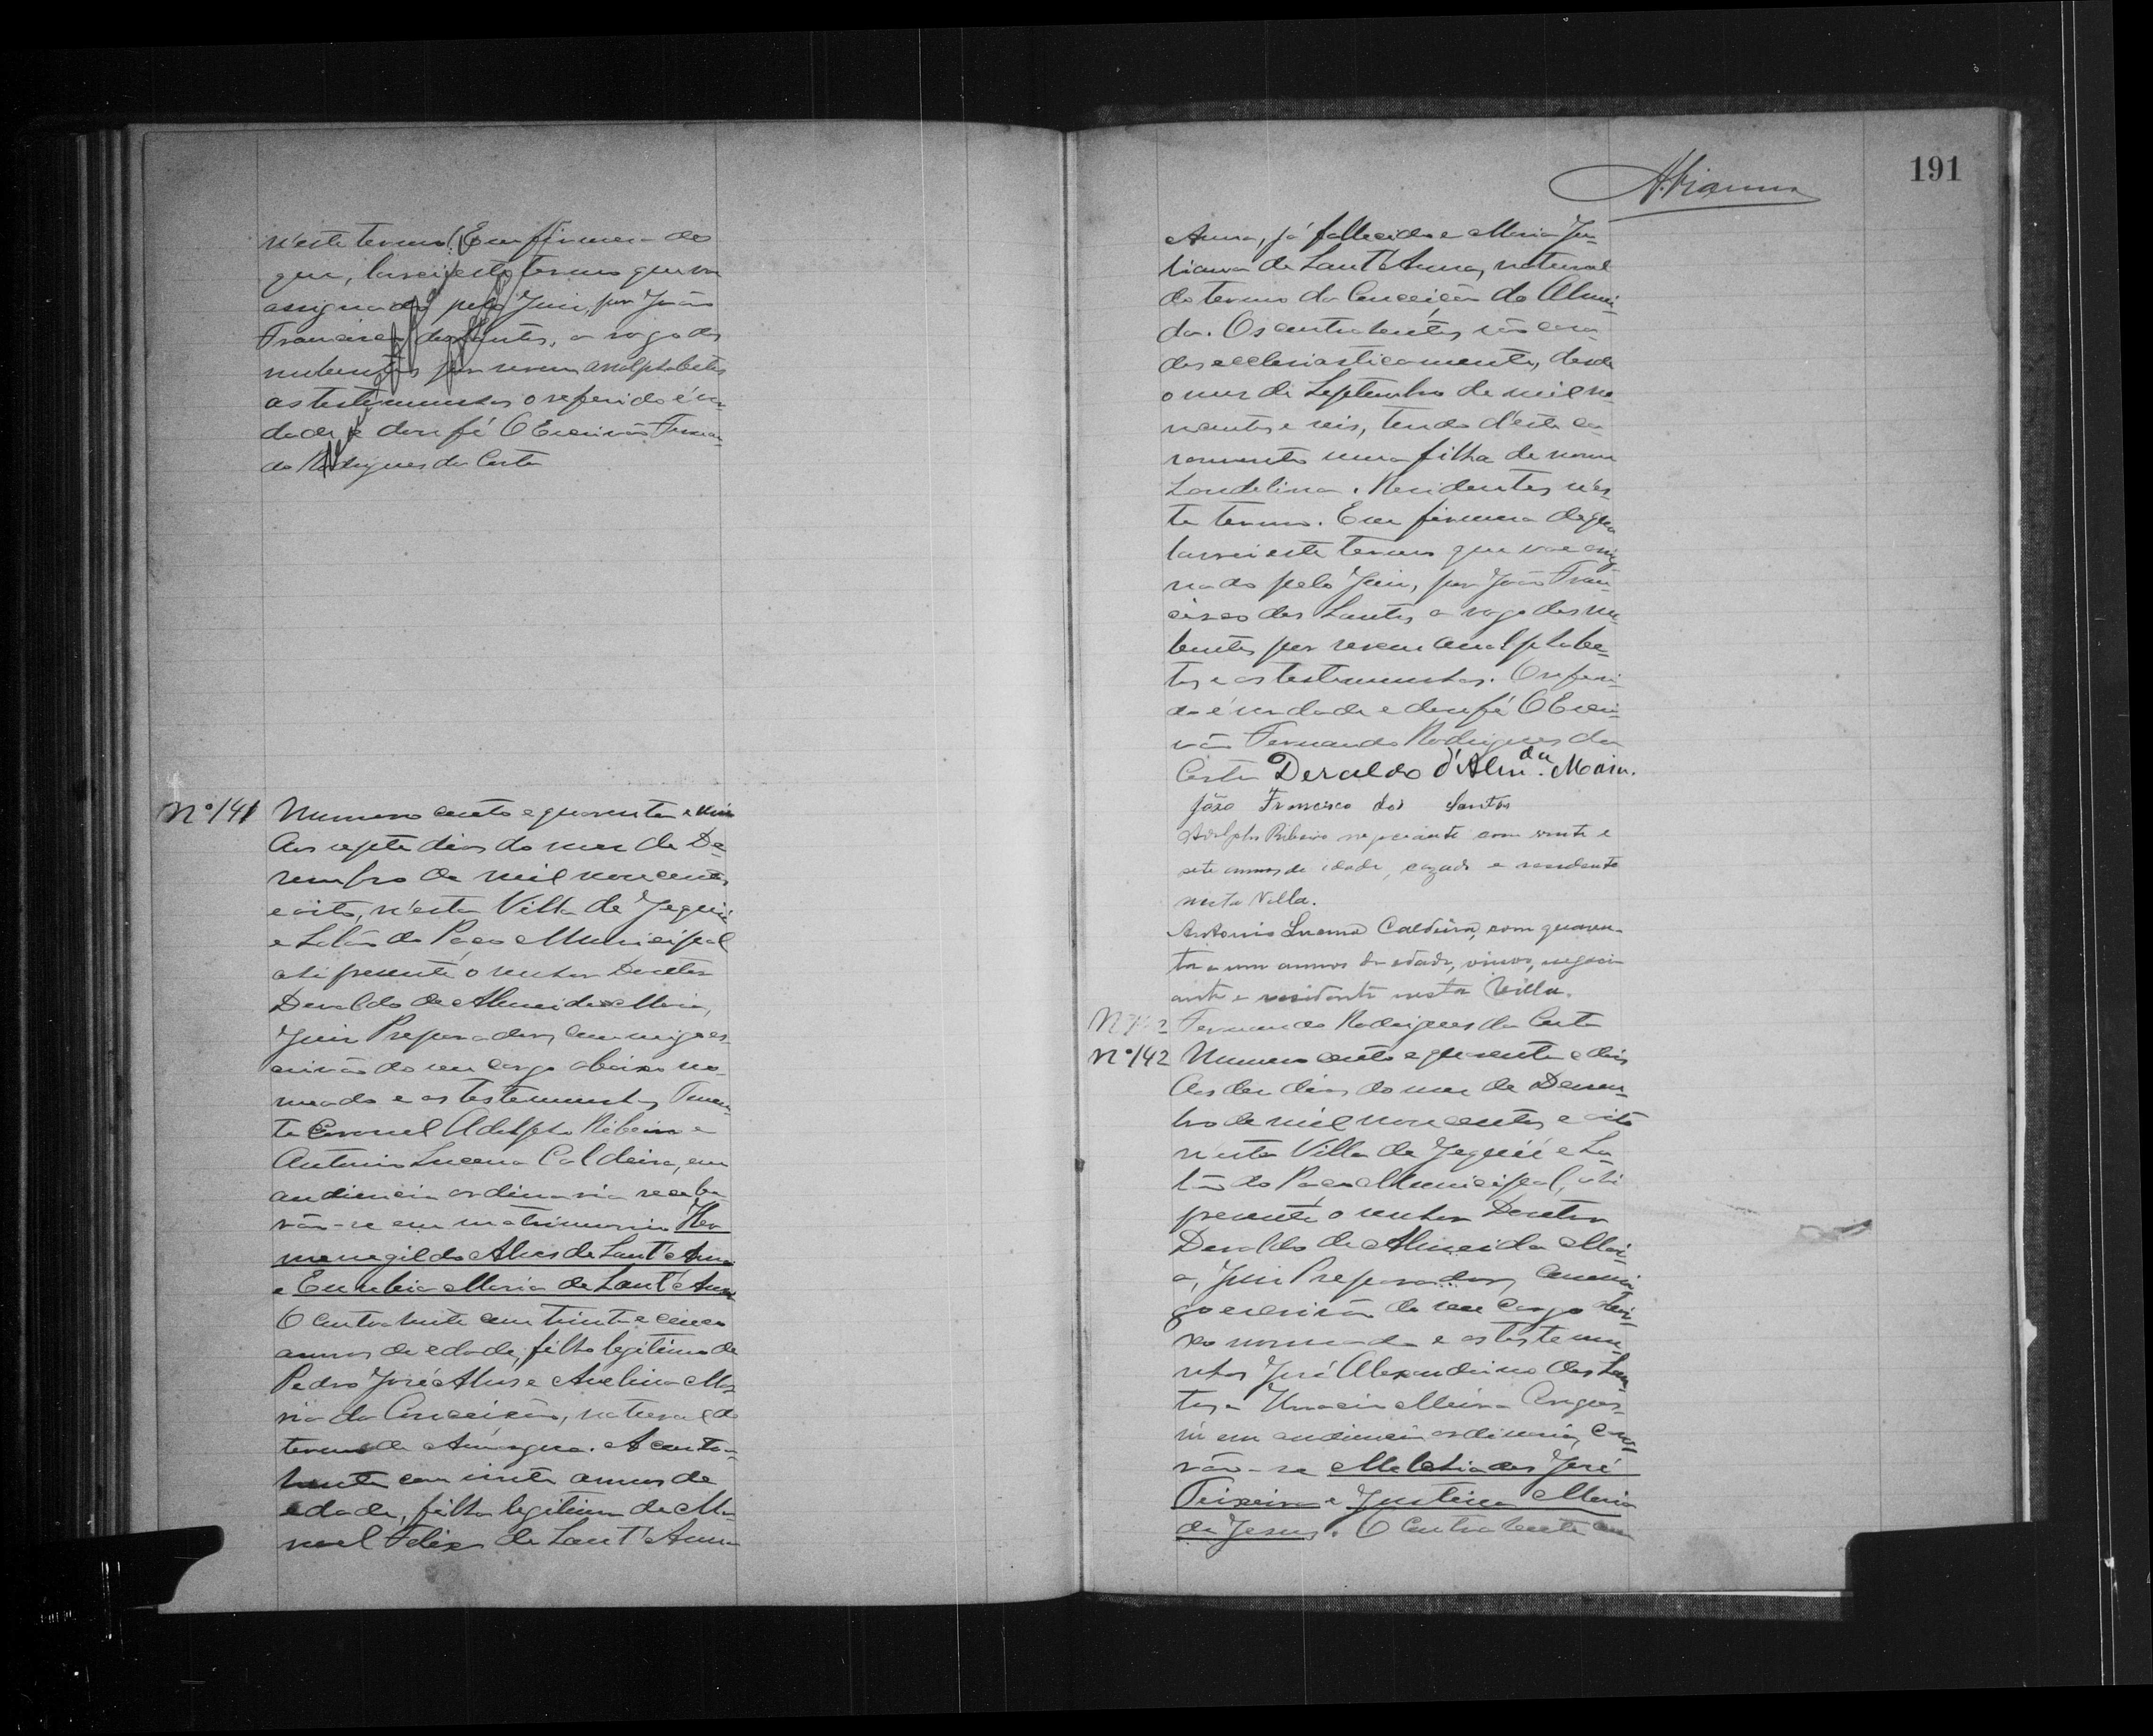 n'este termo. Em firmeza do
que, lavrei este termo que vai
assignado pelo Juiz, por João
Francisco dos Santos, a rogo dos
nubentes por serem analphabetos
as testemunhas o referido é ver
dade e dou fé O Escrivão Fernan
do Rodrigues da Costa
Nº 141
Numero cento e quarenta e um
Aos septe dias do mez de De
zembro de mil novecentos
e oito, n'esta Villa de Jequié
e Salão do Paço Municipal
ahi presente o senhor Doutor
Deraldo de Almeida Maia,
Juiz Preparador, commigo es
crivão do seu cargo abaixo no
meado e as testemunhas Tenen
te Coronel Adolpho Ribeiro e
Antonio Lucena Caldeira, em
audiencia ordinaria recebe
rão-se em matrimonio Her
menegildo Alves de Sant'Anna
e Euzebia Maria de Sant'Anna
O contrahente com trinta e cinco
annos de edade, filho legitimo de
Pedro José Alves e Avelina Ma
ria da Conceição, natural do
termo de Amargosa. A contra
hente com vinte annos de
edade, filha legitima de Ma
noel Felix de Sant'Anna
191
A. Vianna
Anna, já fallecido e Maria Ju
liana de Sant'Anna, natural
do termo da Conceição do Almei
da. Os contrahentes são casa
dos ecclesiasticamente, desde
o mez de Septembro de mil no
vecentos e seis, tendo d'este ca
samento uma filha de nome
Laudelina. Residentes n'es
te termo. Em firmeza do que
lavrei este termo que vae assig
nado pelo Juiz, por João Fran
cisco dos Santos, a rogo dos nu
bentes por serem analphabe
tos e as testemunhas. O referi
do é verdade e dou fé O Escri
vão Fernando Rodrigues da
Costa Deraldo d'Almda. Maia.
João Francisco dos Santos
Adolpho Ribeiro negociante com vinte e
sete annos de idade, cazado e residente
nesta Villa.
Antonio Lucena Caldeira, com quaren
ta e um annos de edade, viuvo, negoci
ante e residente nesta Villa.
Fernando Rodrigues da Costa
Nº 142
Numero cento e quarenta e dois
Aos dez dias do mez de Dezem
bro de mil novecentos e oito
n'esta Villa de Jequié e Sa
lão do Paço Municipal, ahi
presente o senhor Doutor
Deraldo de Almeida Mai
a, Juiz Preparador, commi
go escrivão do seu cargo abai
xo nomeado e as testemu
nhas José Alexandrino dos San
tos e Meira
em audiencia ordinaria, casa
rão-se Melchiades José
Teixeira e Justina Maria
de Jesus. O contrahente com